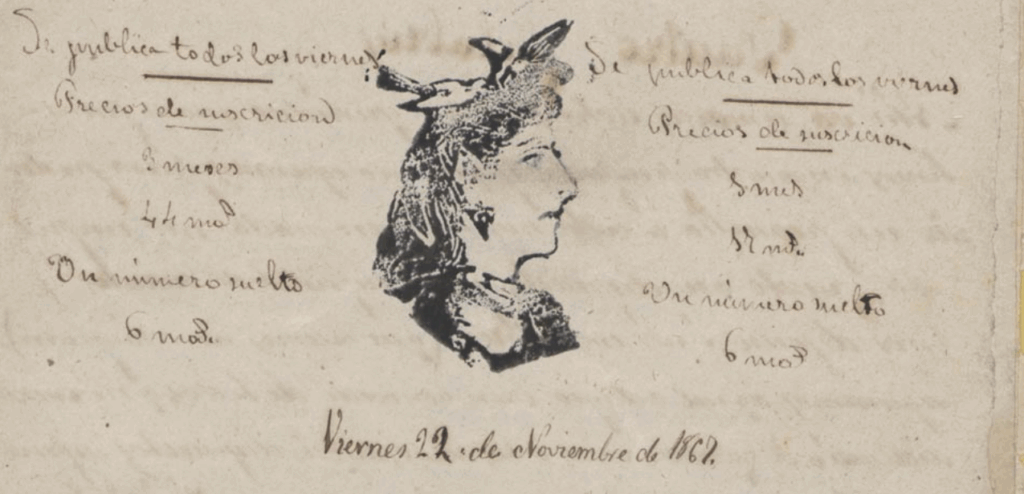 Se publica todos los viernes
Precios de suscricion
3 meses
44 mos
Un número suelto
6 mos.
Se publica todos los viernes
Precios de suscricion
Un número suelto
6 mos
Viernes 22 de Noviembre de 1867.